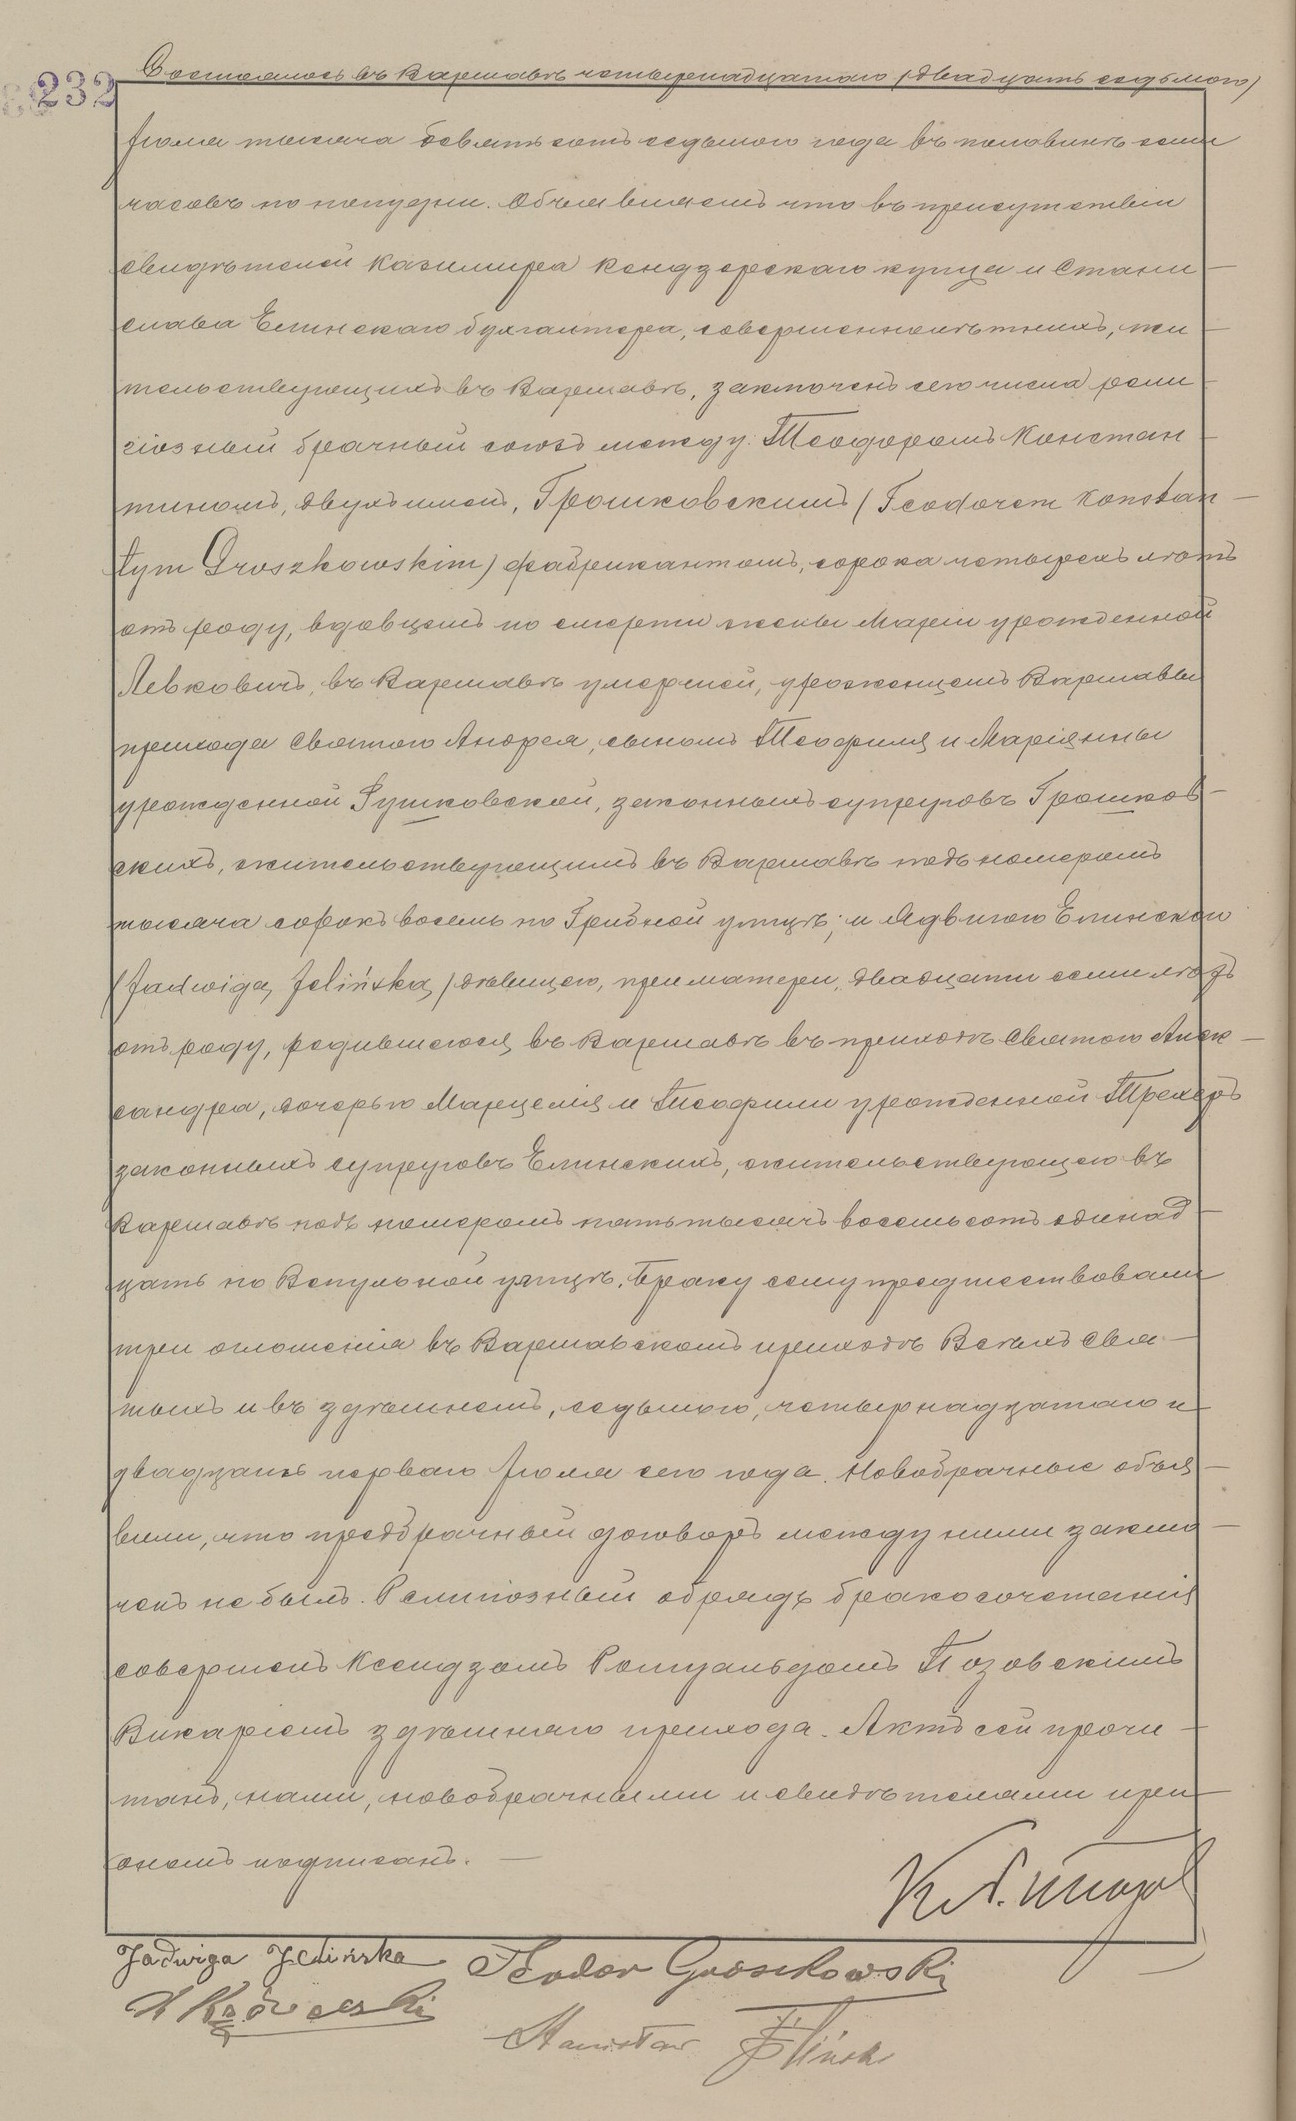 232
Состоялось въ Варшавѣ четырнадцатаго (двадцать седьмого)
Іюля тысяча девятьсотъ седьмого года въ половинѣ семи
часовъ по полудни. Объявляемъ что въ присутствіи
свидѣтелей Казимира Кендзерскаго купца и Стани
слава Елинскаго бухгалтера, совершеннолѣтнихъ, жи
тельствующихъ въ Варшавѣ, заключенъ сего числа рели
гіозный брачный союзъ между: Теодоромъ Констан
тиномъ, двухъ именъ, Грошковскимъ (Teodorem Konstan
tym Groszkowskim) фабрикантомъ, сорока четырехъ лѣтъ
отъ роду, вдовцемъ по смерти жены Маріи урожденной
Левковичъ, въ Варшавѣ умершей, уроженцемъ Варшавы
прихода Святого Андрея, сыномъ Теофиля и Маріянны
урожденной Гушковской, законныхъ супруговъ Грошков
скихъ, жительствующимъ въ Варшавѣ подъ номеромъ
тысяча сорокъ восемь по Грибной улицѣ; и Ядвигою Елинскою
(Jadwigą Jelińską) дѣвицею, при матери, двадцати семи лѣтъ
отъ роду, родившеюся въ Варшавѣ въ приходѣ Святого Алек
сандра, дочерью Марцелія и Теофили урожденной Трехеръ
законныхъ супруговъ Елинскихъ, жительствующею въ
Варшавѣ подъ номеромъ пять тысячъ восемьсотъ одинад
цать по Вспульной улицѣ. Браку сему предшествовали
три оглошенія въ Варшавскомъ приходѣ Всѣхъ Свя
тыхъ и въ здѣшнемъ, седьмого, четырнадцатаго и
двадцать перваго Іюля сего года. Новобрачные объя
вили, что предбрачный договоръ между ними заклю
ченъ не былъ. Религіозный обрядъ бракосочетанія
совершенъ Ксендзомъ Ромуальдомъ
Викаріемъ здѣшняго прихода. Актъ сей прочи
танъ, нами, новобрачными и свидѣтелями при
ономъ подписанъ.
Jadwiga Jelińska Teodor Groszkowski
Stanisław Jeliński